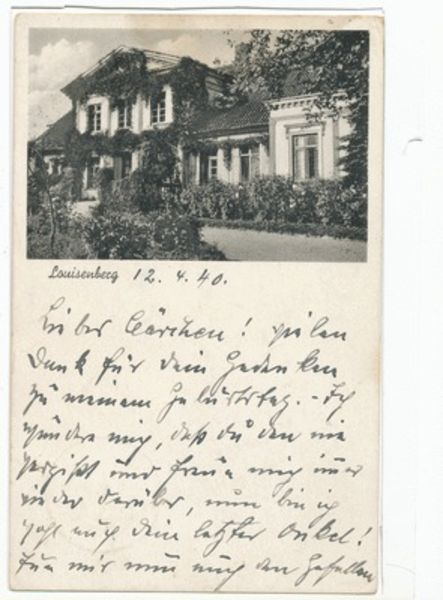 Louisenberg 12. 4. 40.
Liebes Clärchen! vielen
Dank für dein Gedenken
zu meinem Geburtstag. - Ich
wundere mich, daß du den nie
vergißt und freue mich immer
wieder darüber, nun bin ich
wohl auch dein letzter Onkel!
Tue mir nun auch den Gefallen